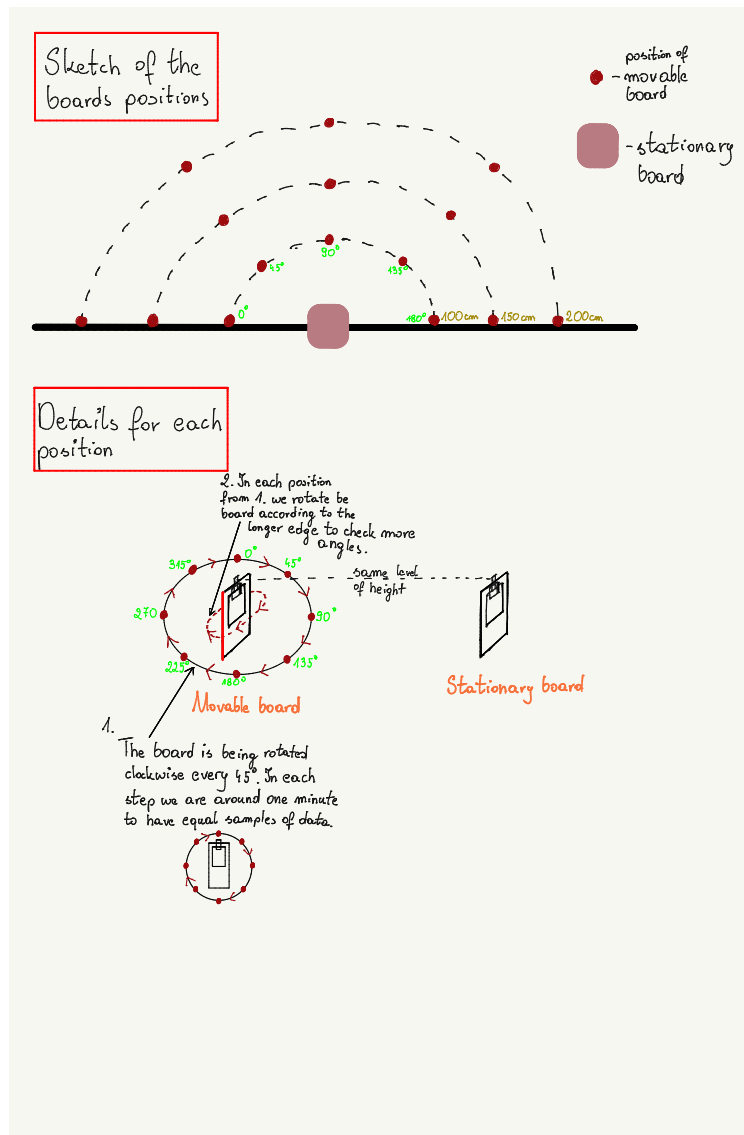 Sketch of the
boards positions
position of
- movable
board
- stationary
board
90°
45°
135°
0°
180°
100cm
150cm
200cm
Details for each
position
2. In each position
from 1. we rotate be
board according to the
longer edge to check more
angles.
0°
315°
45°
same level
of height
270
90°
225°
135°
180°
Movable board
Stationary board
1.
The board is being rotated
clockwise every 45°. In each
step we are around one minute
to have equal samples of data.